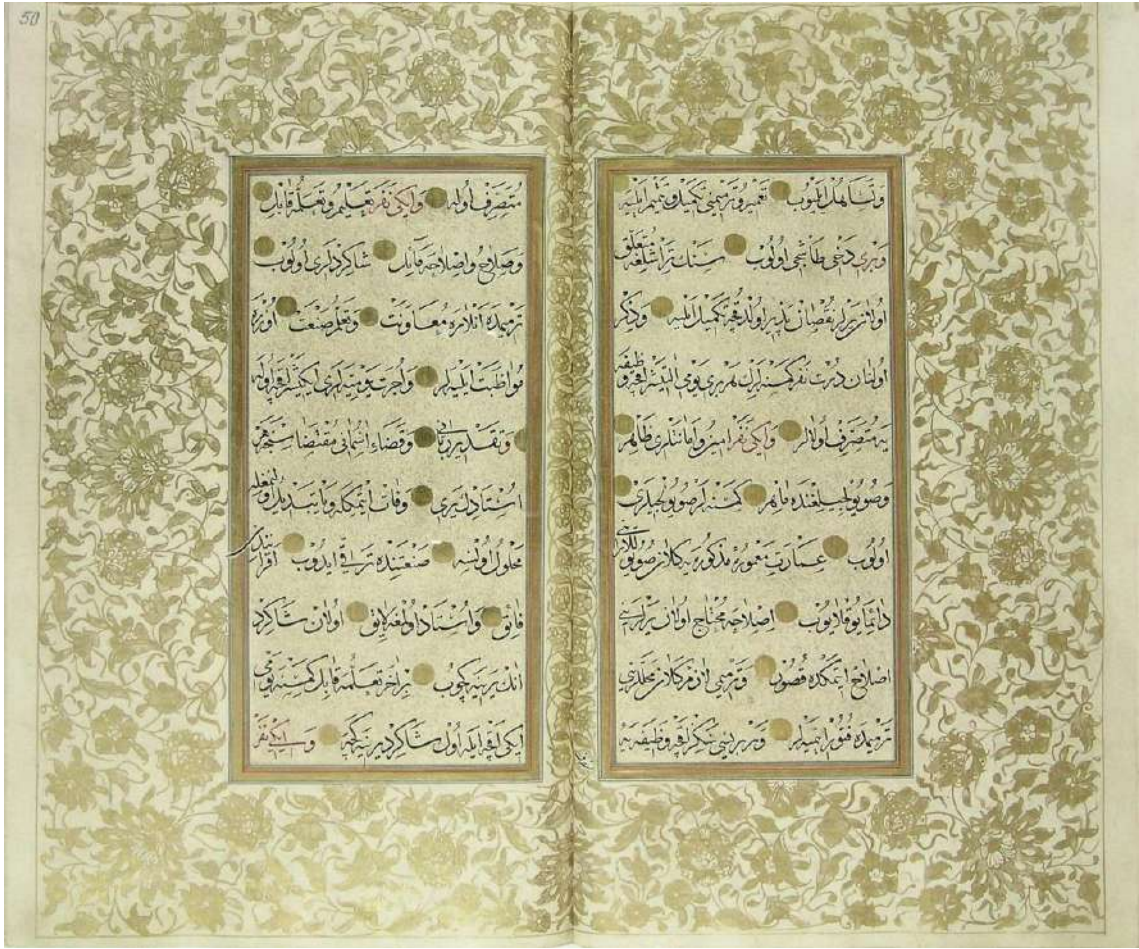 50
وتساهل ايلميوب تعمير وترميمنى تكميل وتتميم ايليه
وبرى دخى طاشجى اولوب سنك تراشلغه متعلق
اولان يرلر نقصان پذير اولدقجه تكميل ايليه وذكر
اولنان درت نفر كمسنه لرك هر برى يومى اقچه وظيفه
يه متصرف اولالر وايكى نفر امين وامانتلرى ظاهر
وصويولجيلغنده ماهر كمسنه لر صويولجيلرى
اولوب عمارت معموره مذكوره يه كلان صويوللارنى
دائما يوقلايوب اصلاحه محتاج اولان يرلرنى
اصلاح ايتمكده قصور وترميمى لازم كلان محللرى
ترميمده فتور ايتميه لر وهر برينى سكز اقچه وظيفه يه
متصرف اوله وايكى نفر تعليم وتعلمه قابل
وصلاح واصلاحه قائل شاكردلرى اولوب
ترميمده انلره معاونت وتعلم صنعت اوزره
مواظبت ايليه لر واجرت يوميه لرى ايكيشر اقچه اوله
وتقدير ربانى وقضاء آسمانى مقتضاسنجه هر
استادلك يرى وفات ايتمكله ويا تبديل اولنمغله
محلول اولسه صنعتنده ترقى ايدوب اقرانندن
فائق واستاد اولمغه لايق اولان شاكرد
انك يرينه كچوب بر اخر تعلمه قابل كمسنه يومى
ايكى اقچه ايله اول شاكرد يرينه كچه وايكى نفر